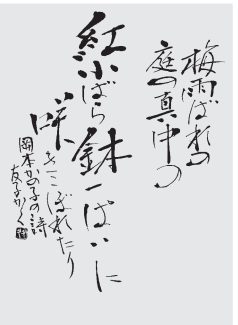 梅雨ばれの
庭の真中の
紅小ばら鉢一ぱいに
咲きこぼれたり
岡本かの子の詩
友子かく